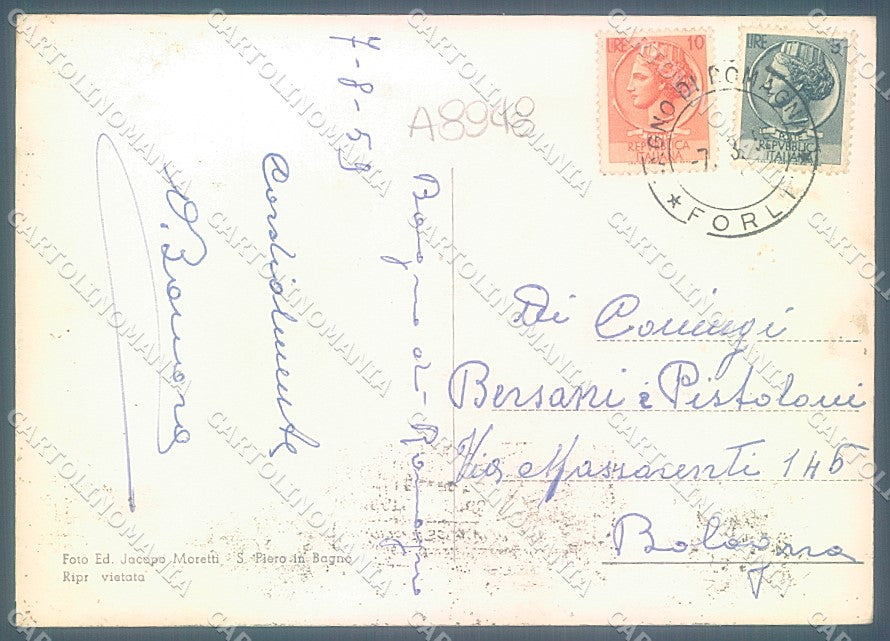 7-8-59
Cordialmente
Bagno di Romagna
A8948
LIRE 10
REPVBBLICA
ITALIANA
LIRE 5
REPVBBLICA
ITALIANA
GNO DI ROMAGN
-7.
★ FORLI
Bersani e Pistoloni
Via Massarenti 146
Bologna
Foto Ed. Jacopo Moretti - S. Piero in Bagno
Ripr vietata
CARTOLINOMANIA